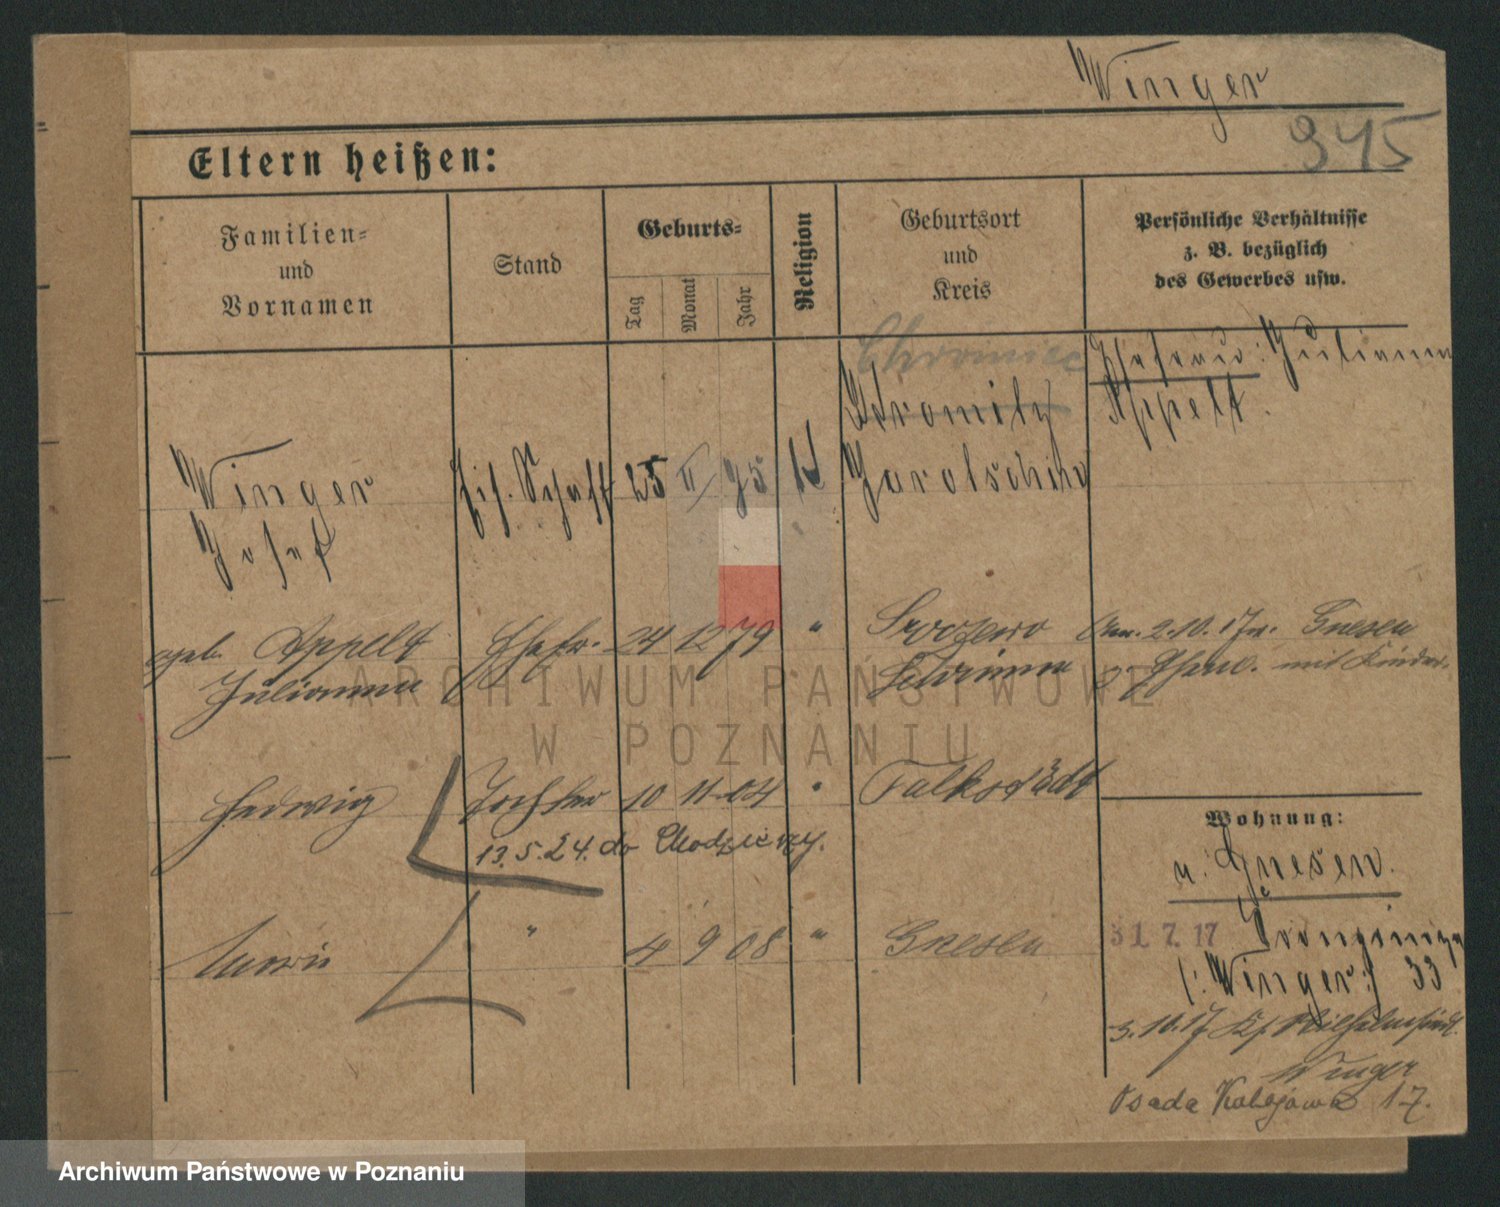 Winger
945
Eltern heißen:
Familien-
und
Vornamen
Stand
Geburts-
Tag
Monat
Jahr
Religion
Geburtsort
und
Kreis
Persönliche Verhältnisse
z. B. bezüglich
des Gewerbes usw.
Winger
Josef
25 II 75
K
Jarotschin
Ehefrau: Julianna
Appelt.
geb. Appelt
Julianna
Ehefr.
24 12 79
"
Schrimm
2.10.17 Gnesen
Ehefr. mit Kinder
Hedwig
Tochter
10 11 04
"
Falkstädt
13.5.24. do Chodzieży.
"
4 9 08
"
Gnesen
Wohnung:
n. Gnesen.
31. 7. 17
(: Winger :) 33
3.10.17 Wilhelmstr.
Winger
Osada Kolejowa 17.
ARCHIWUM PAŃSTWOWE
W POZNANIU
Archiwum Państwowe w Poznaniu